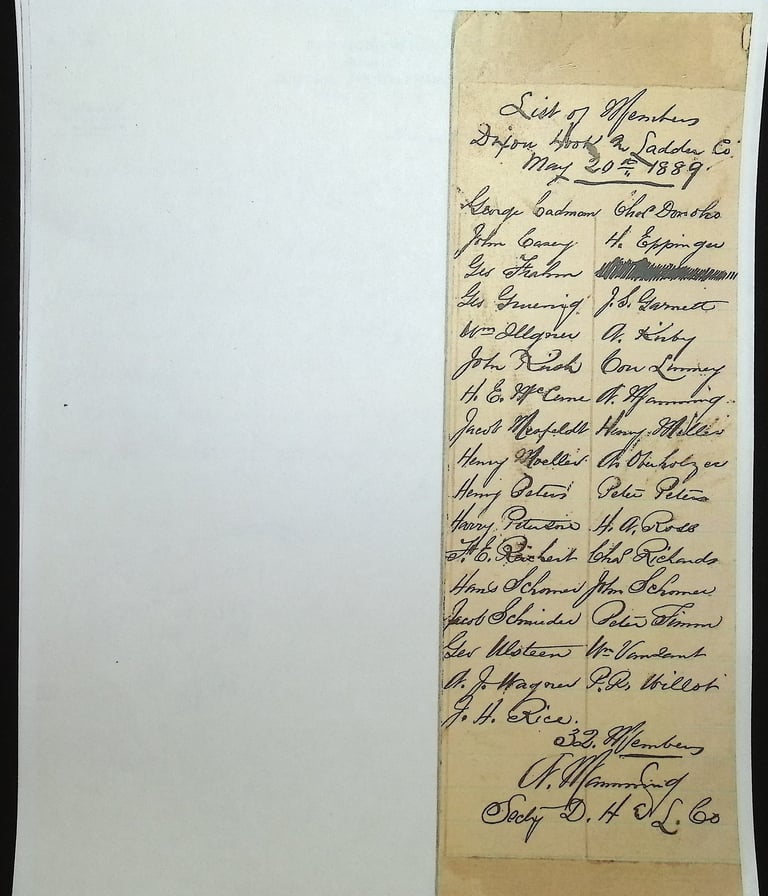 List of Members
Dixon Hook & Ladder Co.
May 20th 1889.
George Cadman Chas Donoho
John Casey H. Eppinger
Geo Frahm
Geo Gruenig J. S. Garnett
Wm Illgner A. Kirby
John Rash Con Linney
H. E. McCune A. Manning
Jacob Neafeldt Henry Miller
Henry Moeller A. Oberholzer
Henry Peters Peter Peters
Harry Peterson H. A. Ross
F. E. Reichert Chas Richards
Hans Schomer John Schomer
Jacob Schmieder Peter Timm
Geo Ulsteen Wm Vansant
A. J. Wagner P. R. Willot
J. H. Rice.
32. Members
A. Manning
Secty D. H & L. Co